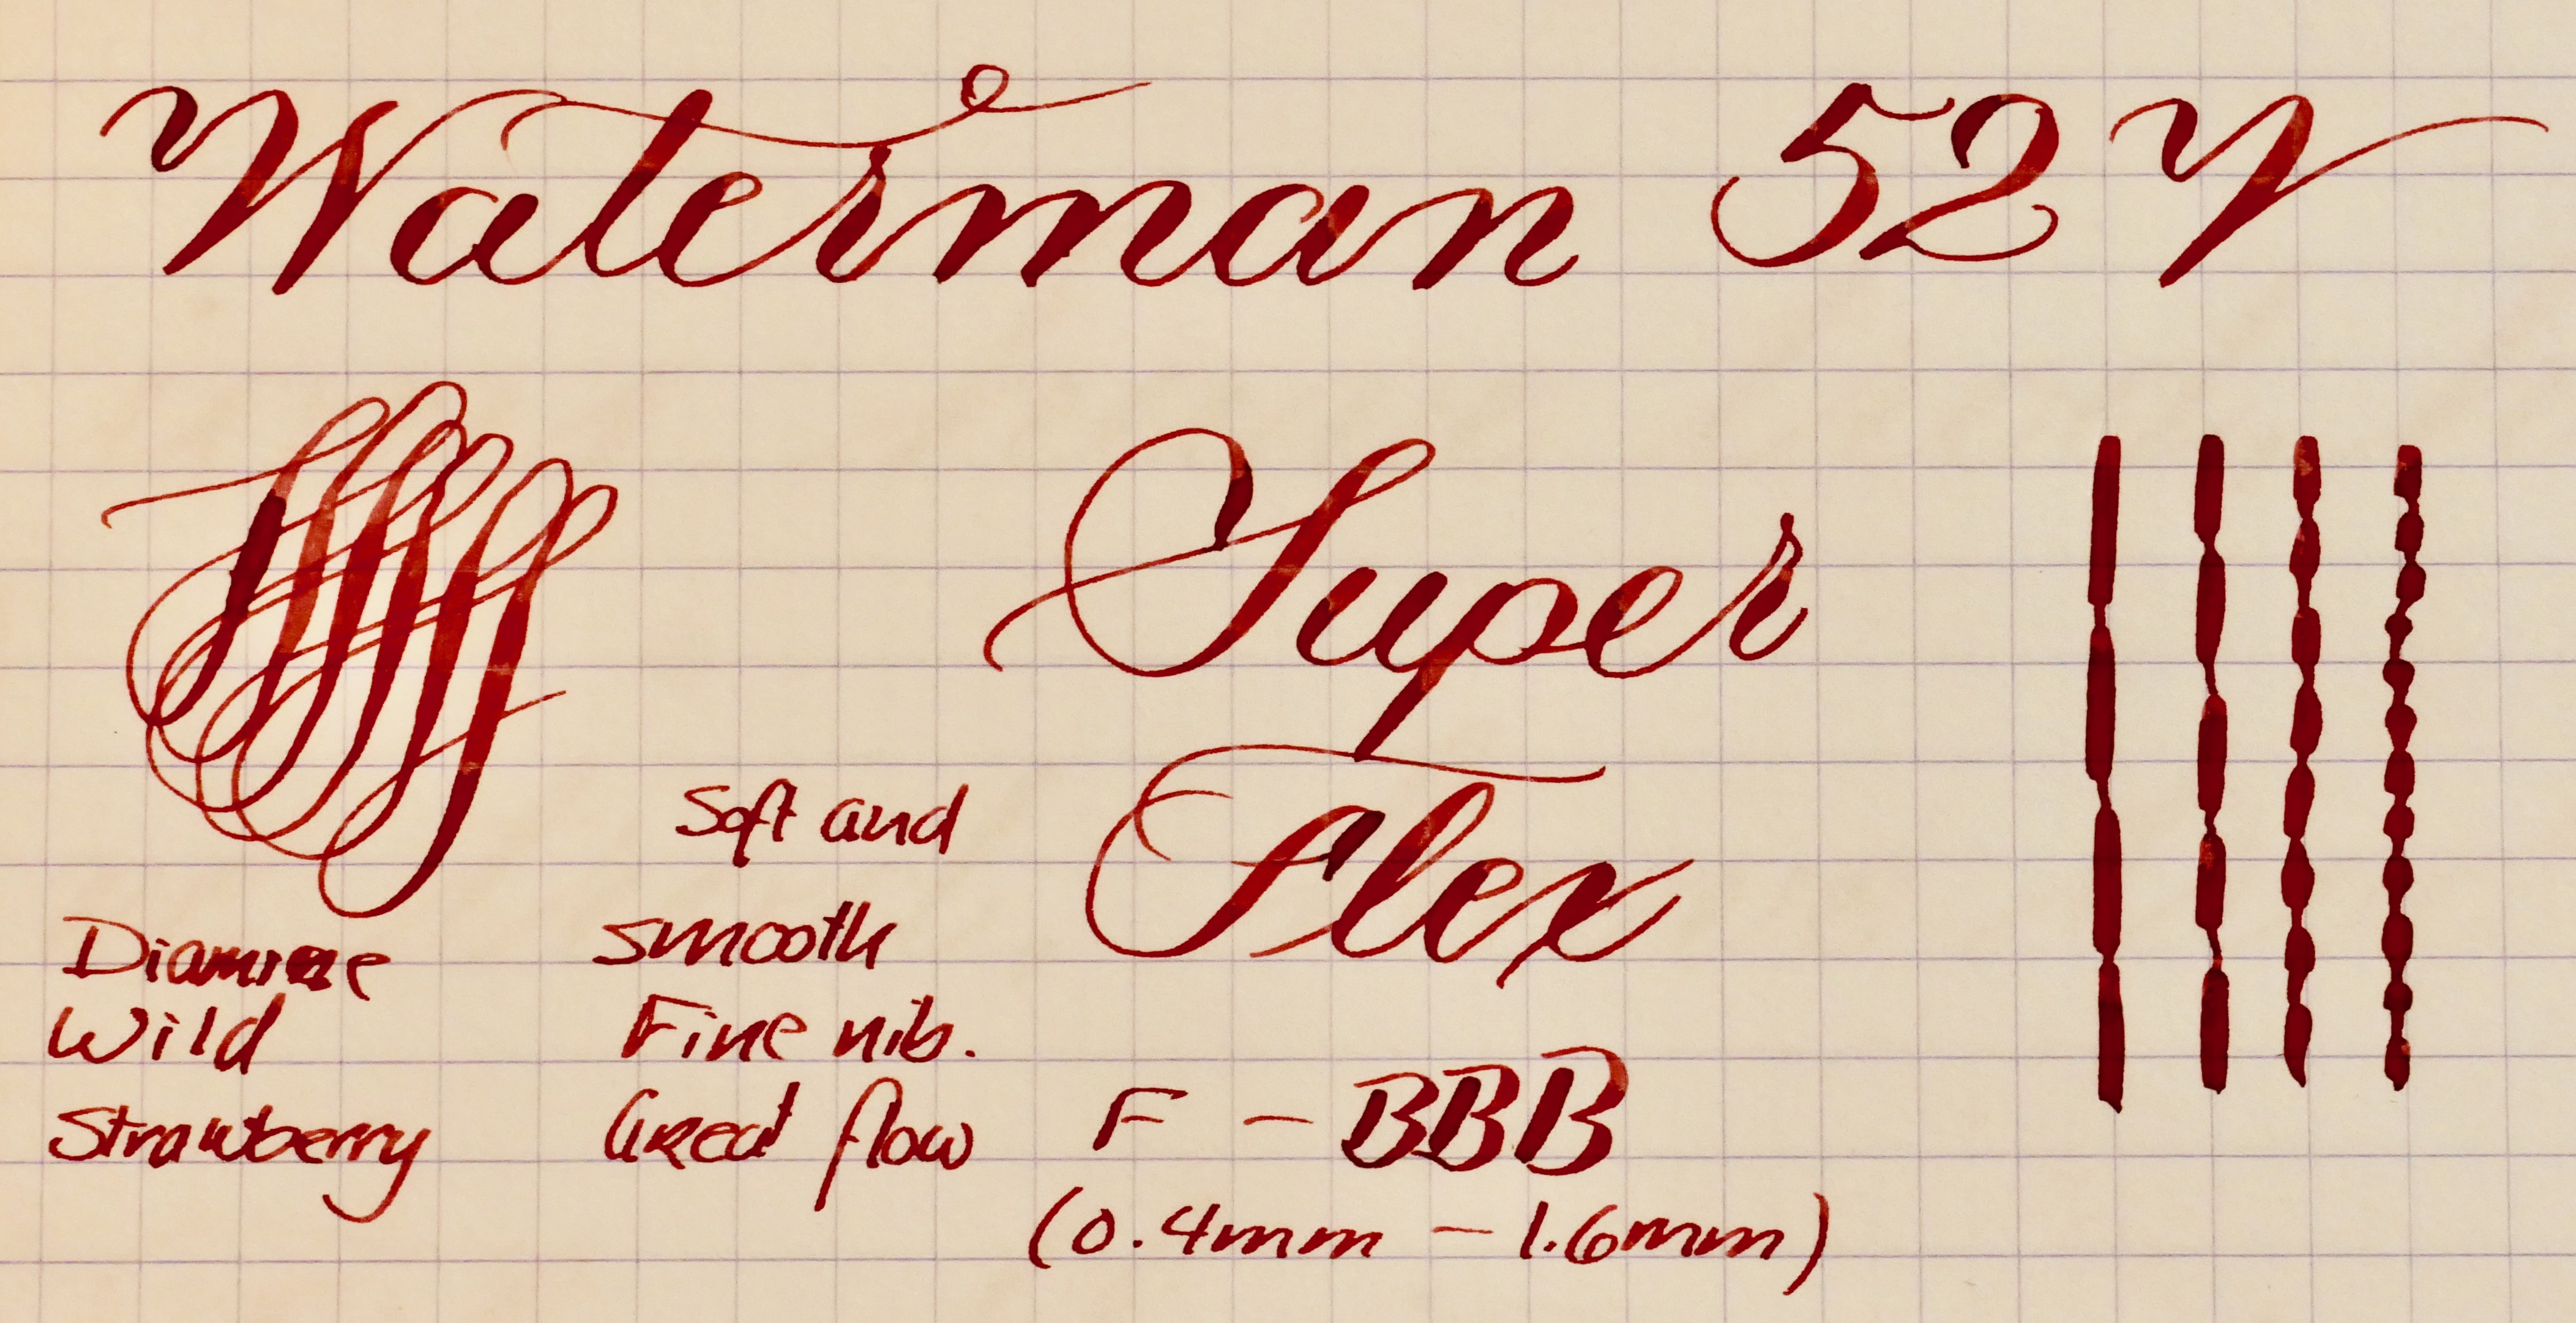 Waterman 52V
Super
Flex
Soft and
smooth
Fine nib.
Great flow
Diamine
Wild
Strawberry
F - BBB
(0.4mm - 1.6mm)